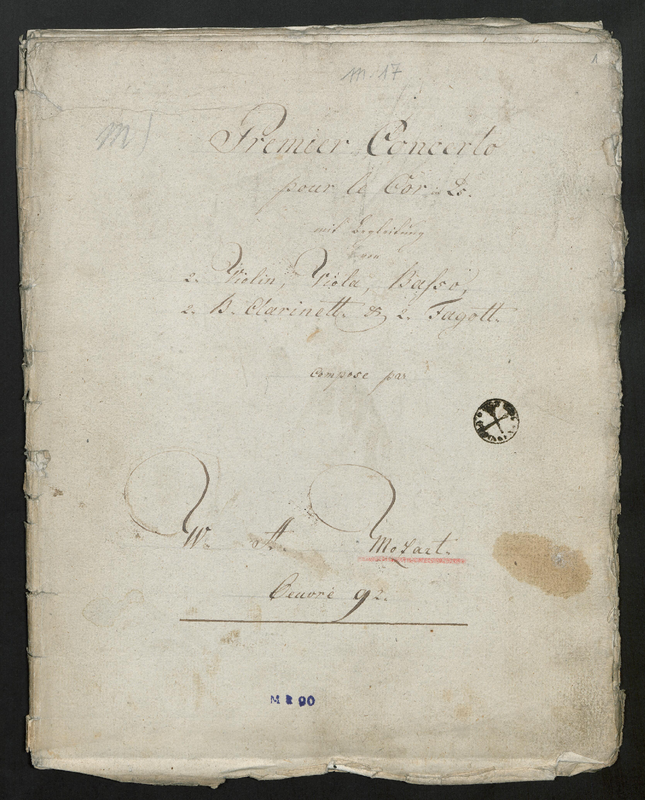 m. 17
1
m)
Premier Concerto
pour le Cor in Es.
mit Begleitung
von
2. Violin, Viola, Baſso,
2. B. Clarinett. & 2. Fagott.
Composé par
W. A. Mozart.
Oeuvre 92.
M 90